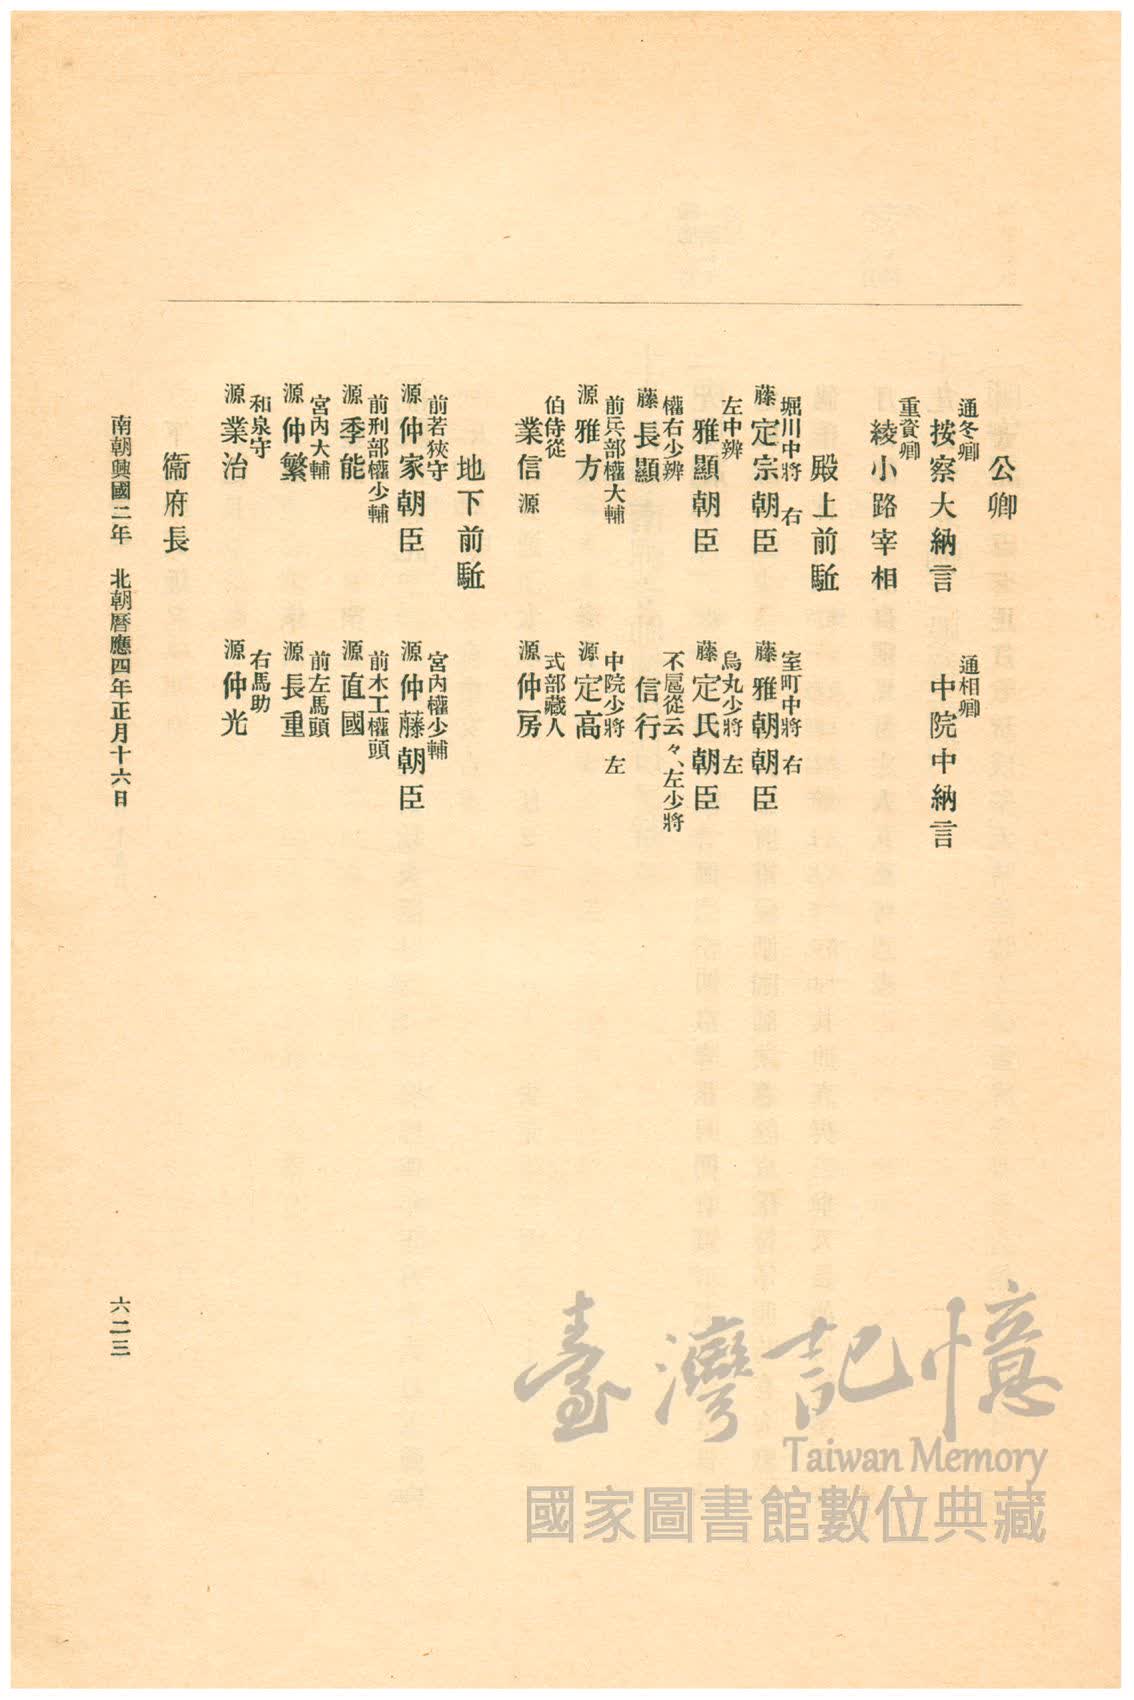 公卿
通冬卿
按察大納言
通相卿
中院中納言
重資卿
綾小路宰相
殿上前駈
堀川中將 右
藤定宗朝臣
室町中將 右
藤雅朝朝臣
左中辨
雅顯朝臣
烏丸少將 左
藤定氏朝臣
權右少辨
藤長顯
不扈從云々、左少將
信行
前兵部權大輔
源雅方
中院少將 左
源定高
伯侍從
業信 源
式部藏人
源仲房
地下前駈
前若狹守
源仲家朝臣
宮內權少輔
源仲藤朝臣
前刑部權少輔
源季能
前木工權頭
源直國
宮內大輔
源仲繁
前左馬頭
源長重
和泉守
源業治
右馬助
源仲光
衞府長
南朝興國二年 北朝曆應四年正月十六日
六二三
臺灣記憶
Taiwan Memory
國家圖書館數位典藏